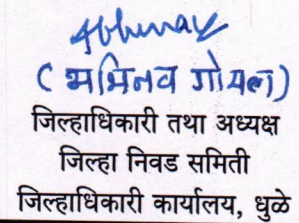 Abhinav
(अभिनव गोयल)
जिल्हाधिकारी तथा अध्यक्ष
जिल्हा निवड समिती
जिल्हाधिकारी कार्यालय, धुळे